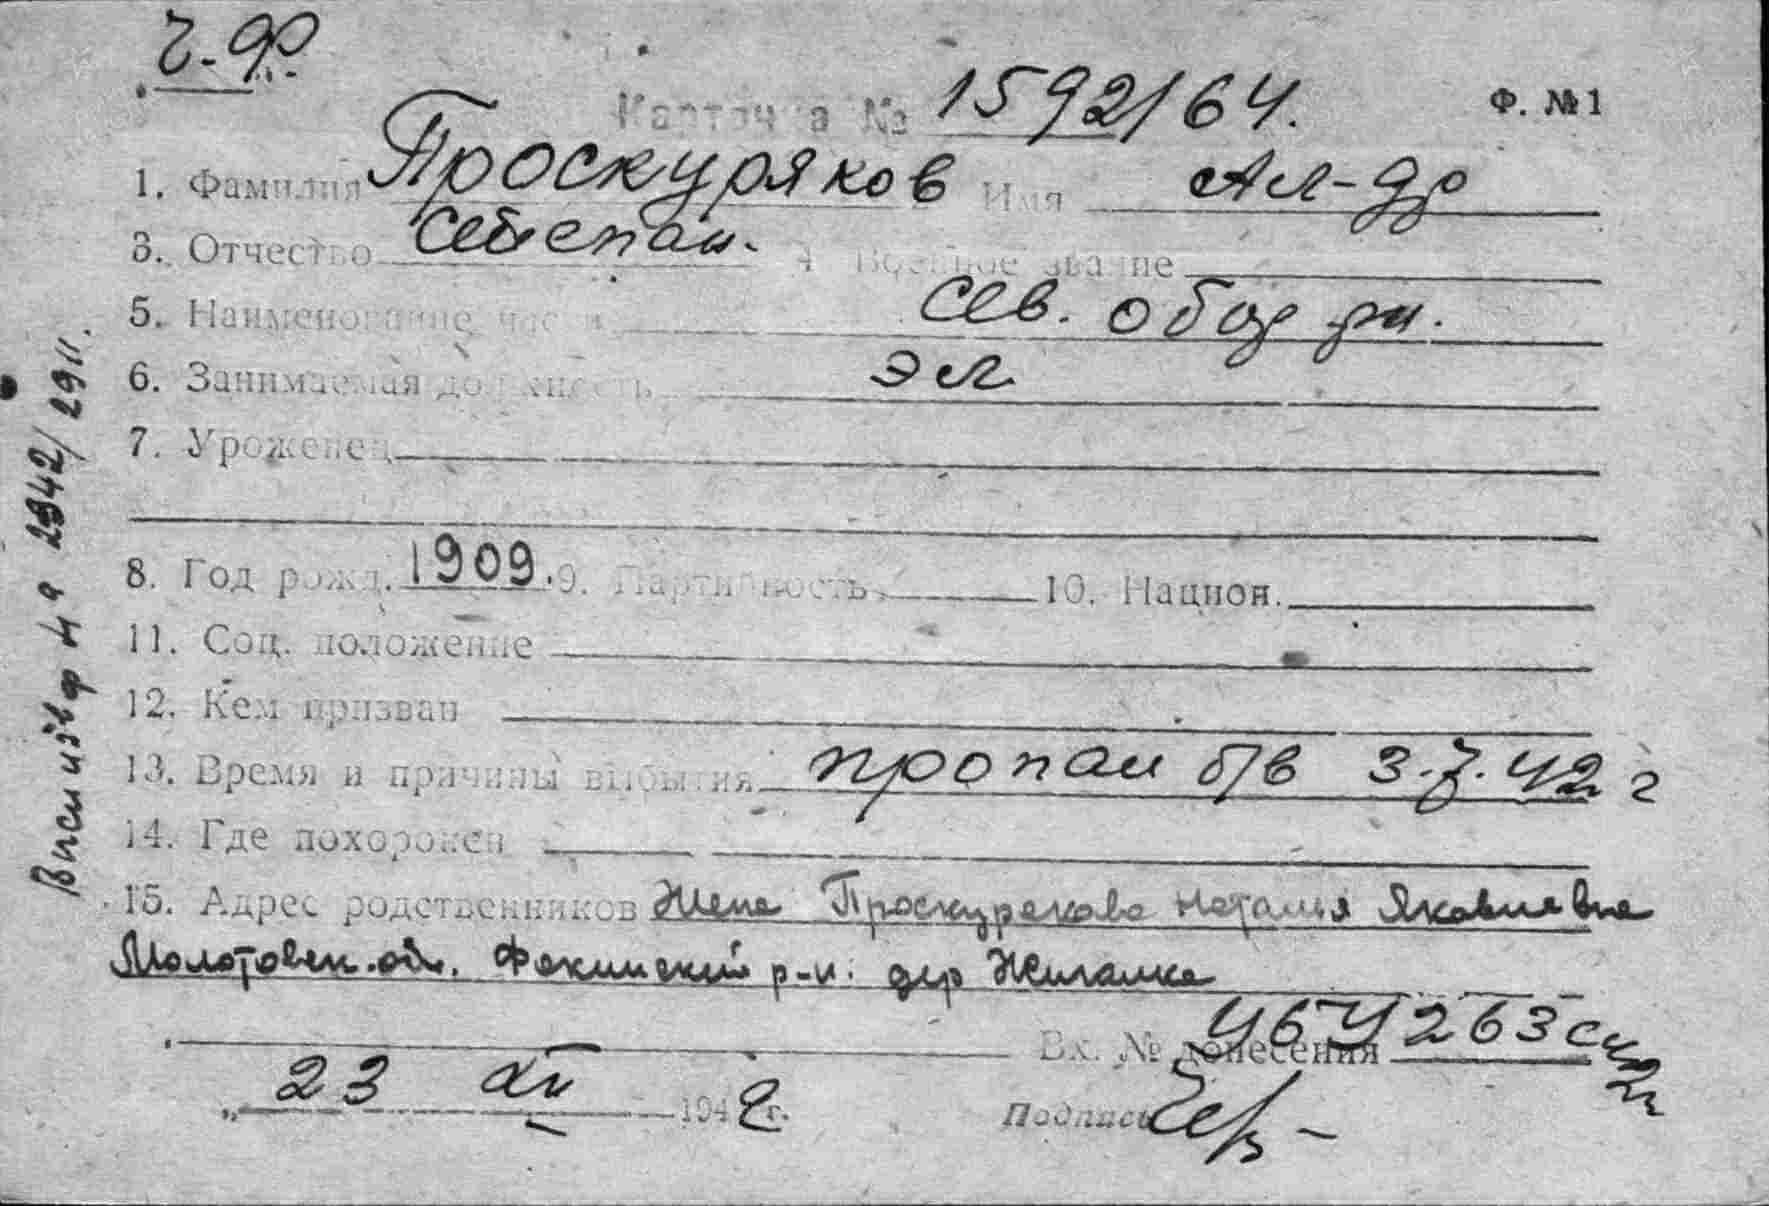 Ч-Ф
Карточка № 1592/64. Ф. № 1
1. Фамилия Проскуряков Имя Ал-др
3. Отчество 4 Военное звание
5. Наименование части Сев. обор рн.
6. Занимаемая должность эл
7. Уроженец
8. Год рожд. 1909. 9. Партийность 10. Национ.
11. Соц. положение
12. Кем призван
13. Время и причины выбытия пропал б/в 3.7.42 г
14. Где похоронен
15. Адрес родственников Жена Проскурекова Наталья Яковлевна
Молотовск. обл. р-н. дер Жигалка
Вх. № донесения 464263с
23 XII 1942 г. Подпись